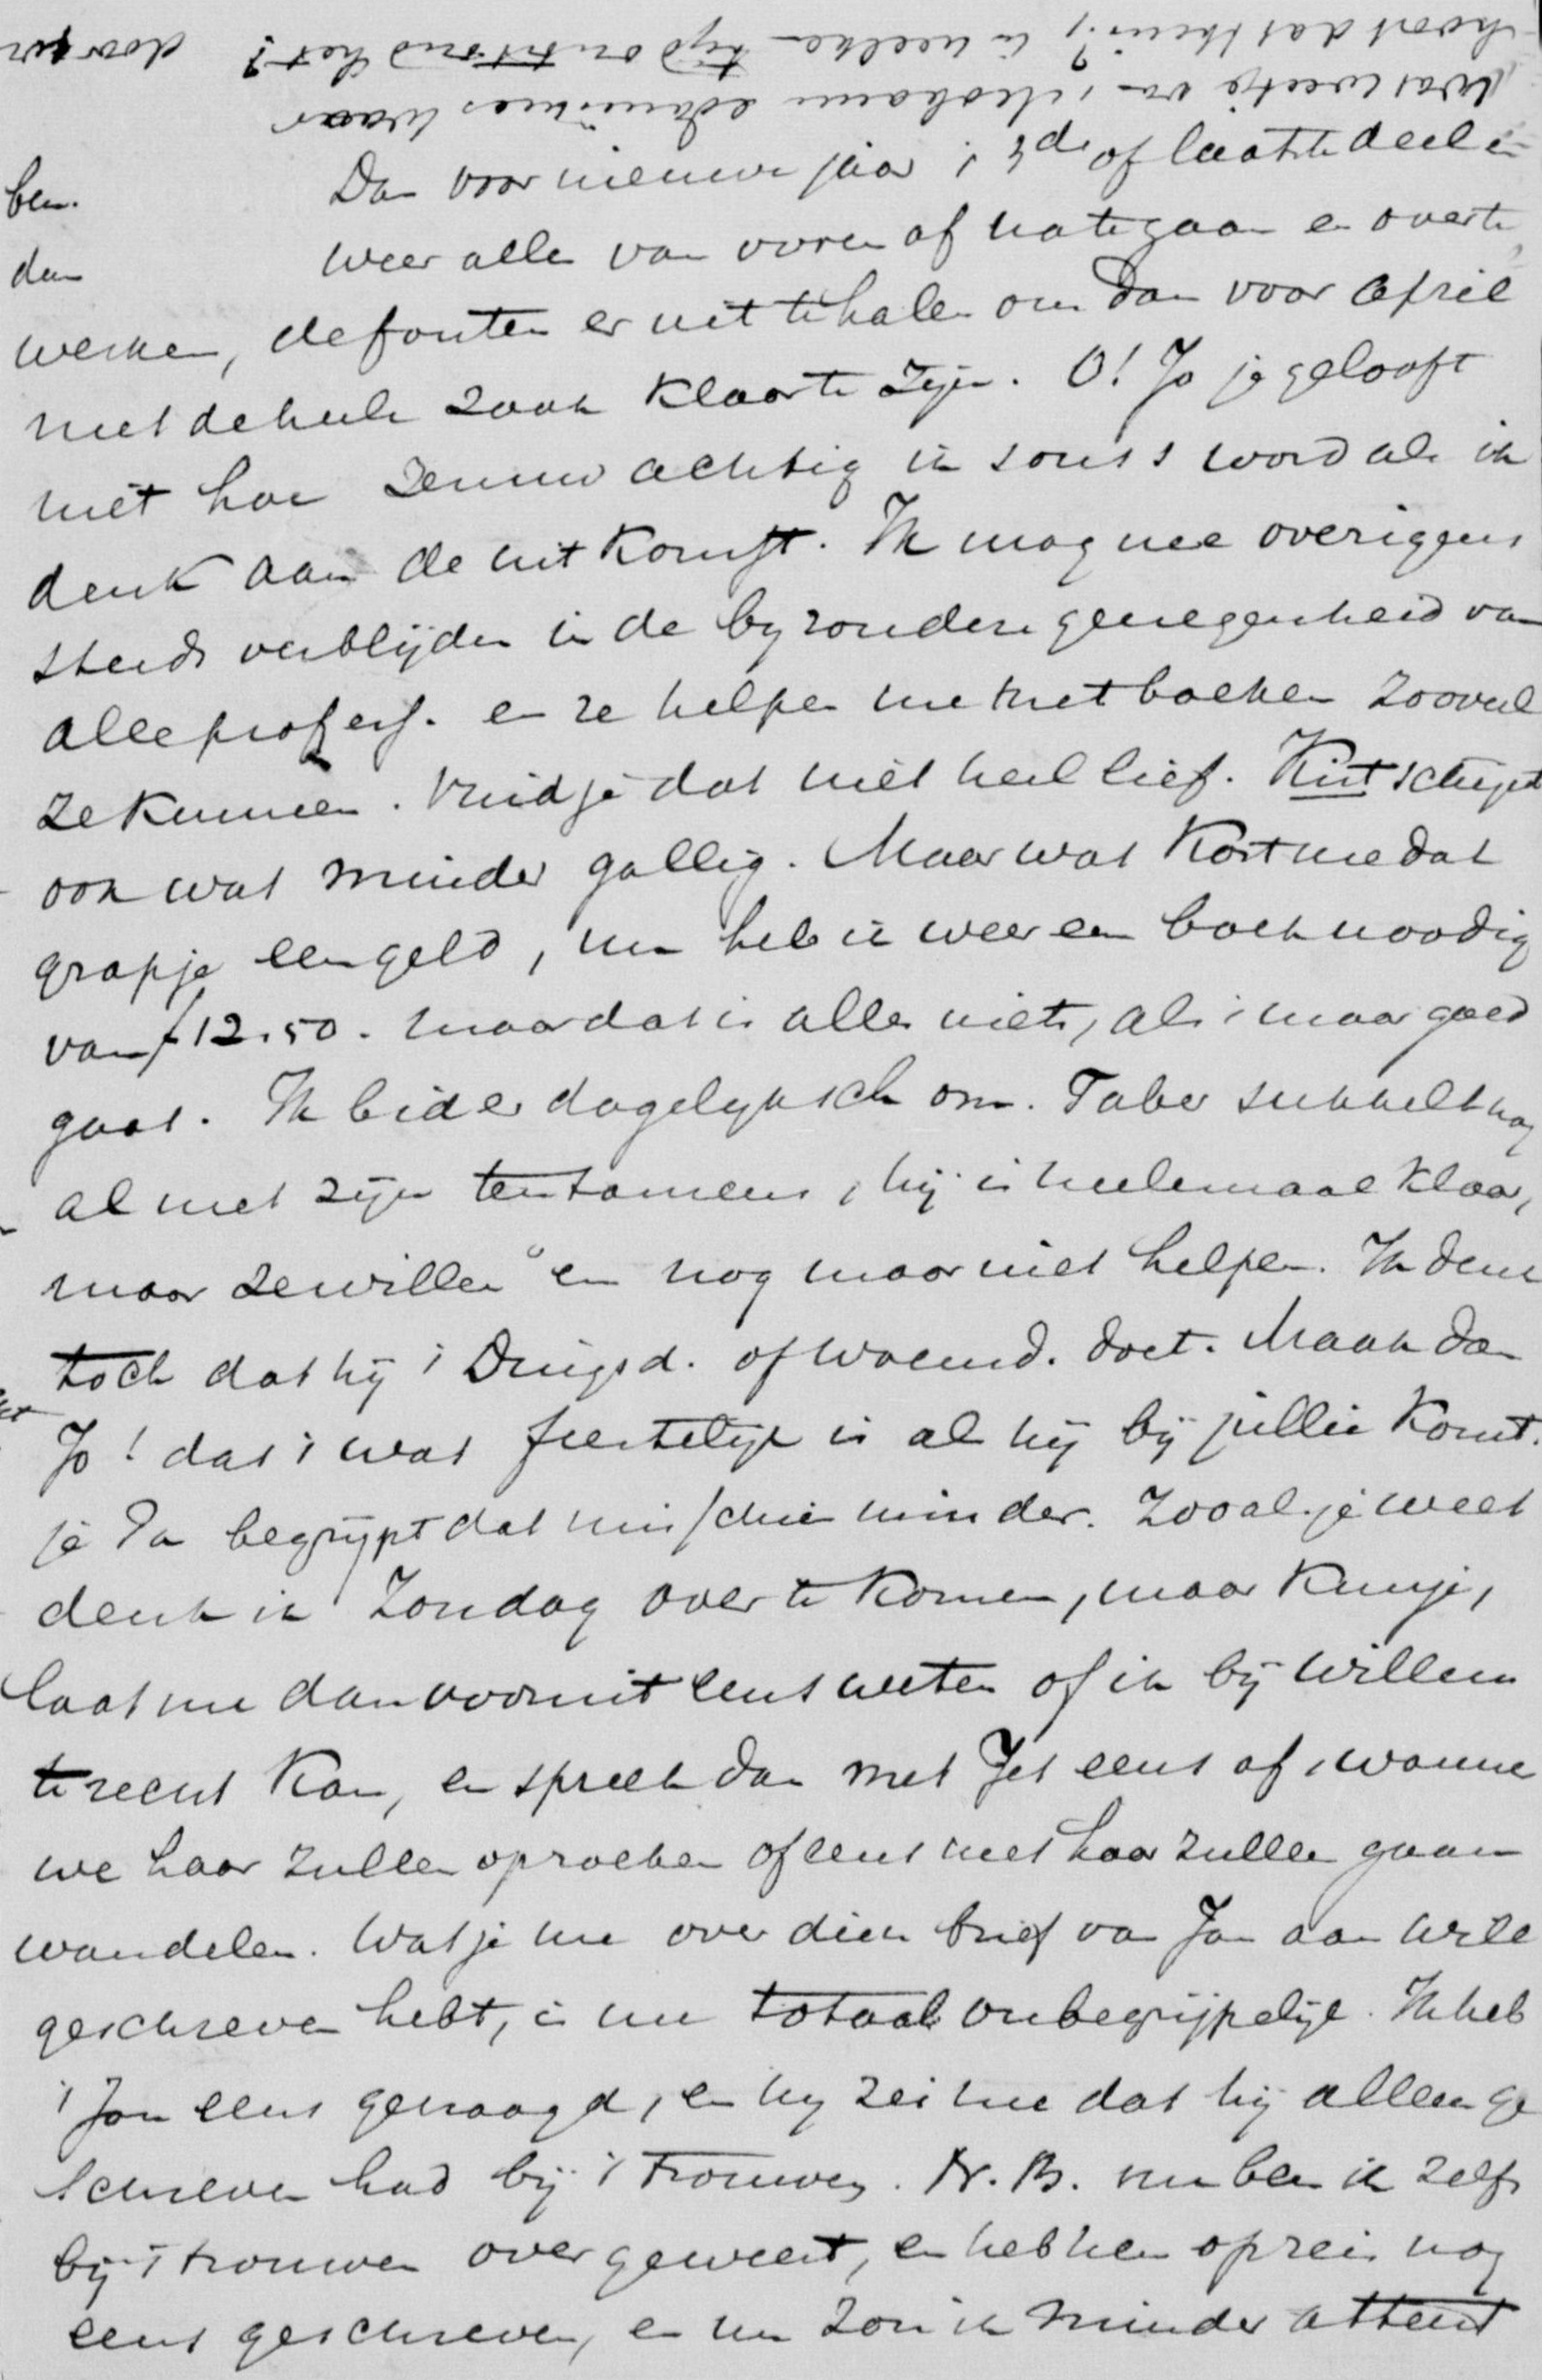 Dan voor nieuwe jaar 't 3de of laatste deel en
ben. weer alles van voren af na te gaan en over te
den
werken, de fouten er uit te halen om dan voor April
met de heele zaak klaar te zijn. O! Jo je gelooft
niet hoe zenuwachtig ik soms word als ik
denk aan de uitkomst. Ik mag me overigens
steeds verblijden in de byzondere genegenheid van
alle profess. en ze helpen me met boeken zooveel
ze kunnen. Vind je dat niet heel lief. Kist schijnt
ook wat minder gallig. Maar wat kost me dat
grapje een geld, nu heb ik weer een boek noodig
van f 12.50. maar dat is alles niets, als 't maar goed
gaat. Ik bid er dagelyksch om. Taber sukkelt nog
al met zijn tentamens, hij is heelemaal klaar,
maar ze willen em nog maar niet helpen. Ik denk
toch dat hij 't Dingsd. of Woensd. doet. Maak dan
Jo! dat 't wat feestelijk is als hij bij jullie komt.
je Pa begrijpt dat misschien minder. Zooals je weet
denk ik Zondag over te komen, maar kun je,
laat me dan vooruit eens weten of ik bij Willem
terecht kan, en spreek dan met Jet eens af, wanneer
we haar zullen opzoeken of eens met haar zullen gaan
wandelen. Wat je me over dien brief van Jan aan Will
geschreven hebt, is me totaal onbegrijpelijk. Ik heb
't Jan eens gevraagd, en hy zei me dat hij alleen ge
schreven had bij 't trouwen. N.B. nu ben ik zelfs
bij 't trouwen over geweest, en heb hen op reis nog
eens geschreven, en nu zou ik minder attent